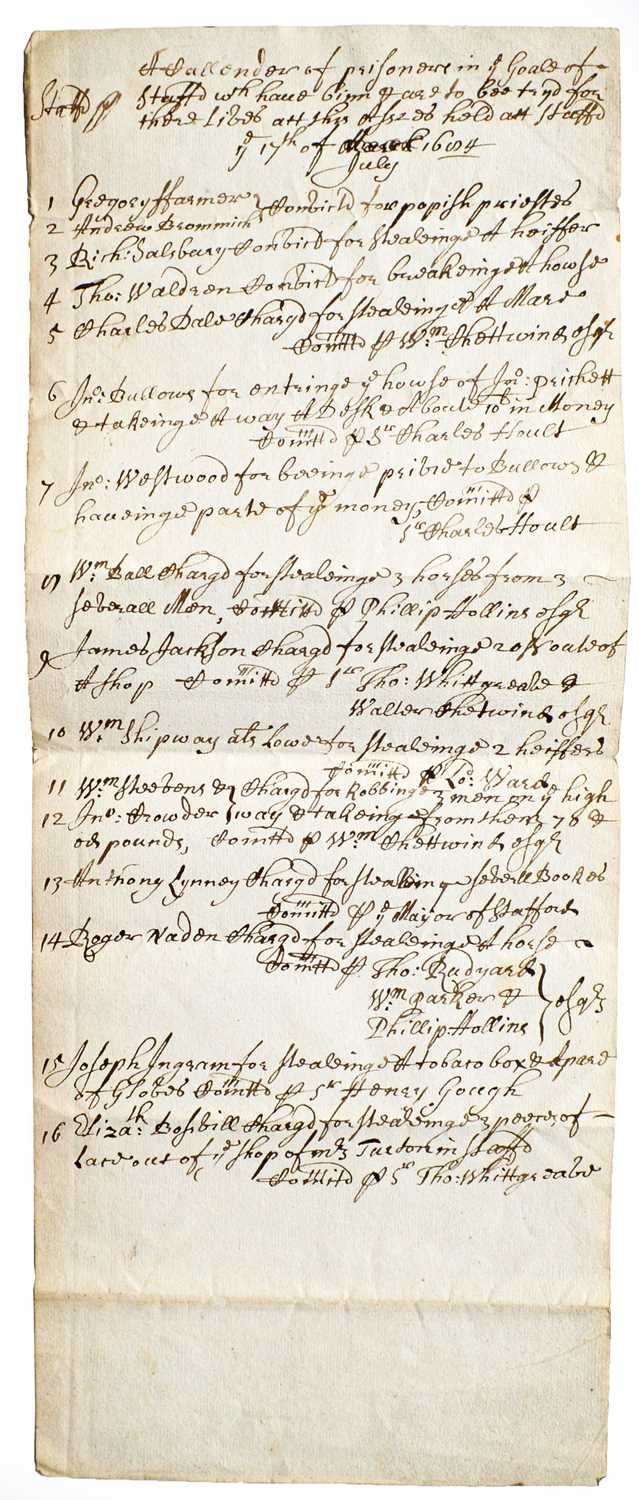 A Callender of prisoners in ye Goale of
Staffd p Staffd wch have binn & are to bee tryd for
there Lives att this Assizes held att Staffd
ye 17th of March 1684
July
1 Gregory ffarmer
2 Andrew Brommich } Convictd for popish priestes
3 Rich: Salsbury Convictd for stealeinge A heiffer
4 Tho: Waldren Convictd for breakeinge A howse
5 Charles Dale Chargd for stealeinge A Mare
Comittd p Wm Chettwind esqr
6 Jno: Bullows for entringe ye howse of Jno: prickett
& takeinge A way A Desk & Aboute in Money
Comittd p Sr Charles Hoult
7 Jno: Westwood for beeinge privie to Bullows &
haveinge parte of ye money, Comittd p
Sr Charles Hoult
8 Wm Ball Chargd for stealeinge 3 horses from 3
severall Men, Comittd p Phillip Hollins esqr
9 James Jackson Chargd for stealeinge oute of
A shop Comittd p Sr Tho: Whittgreave &
Walter Chetwind esqr
10 Wm Shipway als Lowe for stealeinge 2 heiffers
Comittd p Lod: Ward
11 Wm Steevens & } Chargd for Robbinge 3 men on ye high
12 Jno: Crowder } way & takeinge from them 78 &
od pounds, Comittd p Wm Chettwind esqr
13 Anthony Lynney Chargd for stealling severll Bookes
Comittd p ye Mayor of Stafford
14 Roger Naden Chargd for stealeinge A horse
Comittd p Tho: Rudyard
Wm parker & } esqrs
Phillip Hollins
15 Joseph Ingram for stealeinge A tobaco box & A pare
of Gloves Comittd p Sr Henry Gough
16 Elizath: Bosvill Chargd for stealeinge 3 peeces of
Lace out of ye shop of mr Turton in Staffd
Comittd p Sr Tho: Whittgreave